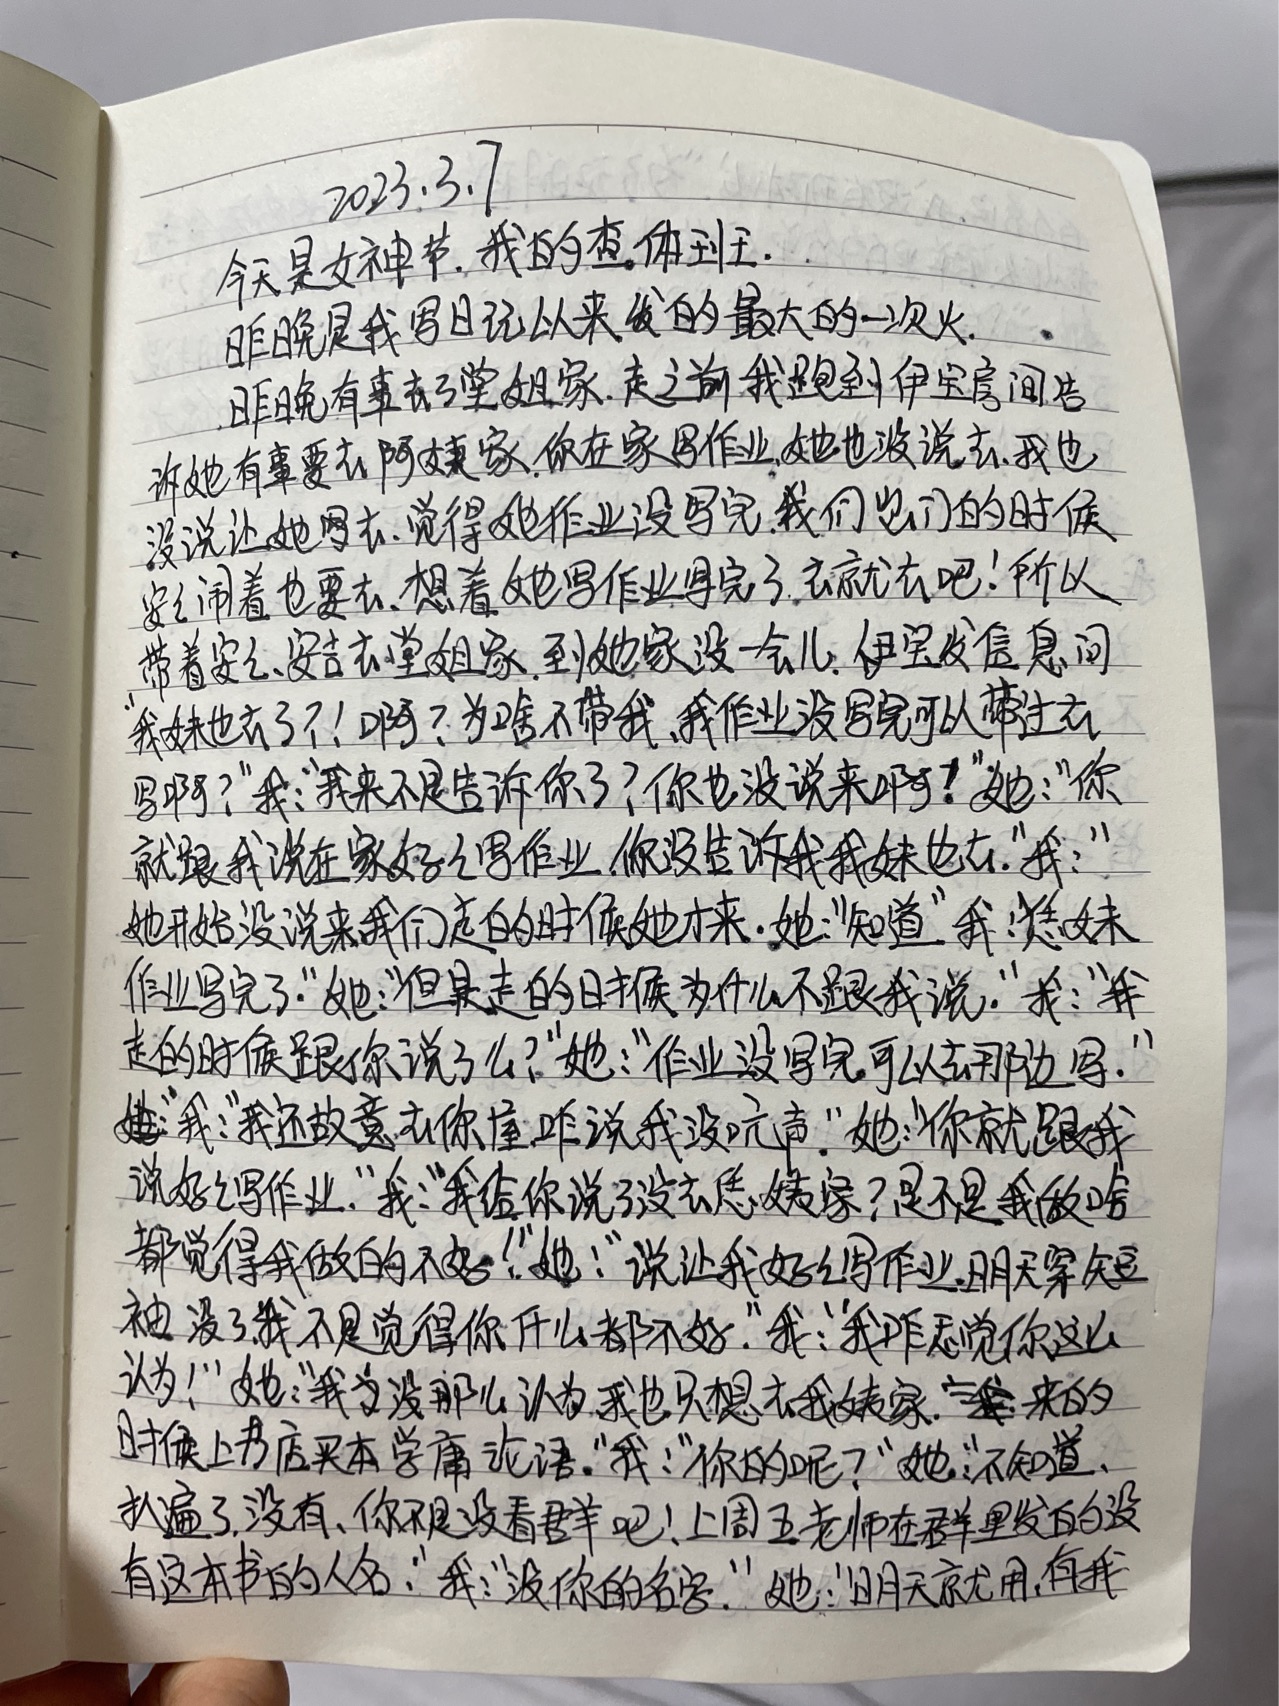 2023.3.7
今天是女神节.我的查.体到王.
昨晚是我写日记以来发的最大的一次火.
昨晚有事去了堂姐家.走之前我跑到伊宝房间告
诉她有事要去阿姨家.你在家写作业.她也没说去.我也
没说让她去.觉得她作业没写完.我们出门的时候
安安闹着也要去.想着她写作业写完了.去就去吧!所以
带着安安、安吉去堂姐家.到她家没一会儿.伊宝发信息问
"我妹也去了?!啊?为啥不带我、我作业没写完可以带过去
写啊?"我:"我来不是告诉你了?你也没说来啊!"她:"你
就跟我说在家好好写作业.你没告诉我我妹也去."我:"
她开始没说来我们走的时候她才来.她:"知道"我:"恁妹
作业写完了."她:"但是走的时候为什么不跟我说."我:"我
走的时候跟你说了么?"她:"作业没写完.可以去那边写."
我:"我还故意去你屋.咋说我没吭声."她:"你就跟我
说好好写作业."我:"我给你说了没去恁姨家?是不是我做啥
都觉得我做的不好!"她:"说让我好好写作业.明天穿短
袖没了.我不是觉得你什么都不好."我:"我咋感觉你这么
认为!"她:"我当没那么认为.我也只想去我姨家.来的
时候上书店买本学庸论语."我:"你的呢?"她:"不知道、
扒遍了.没有、你不是没看群吧!上周五老师在群里发的没
有这本书的人名."我:"没你的名字."她:"明天就用.有我